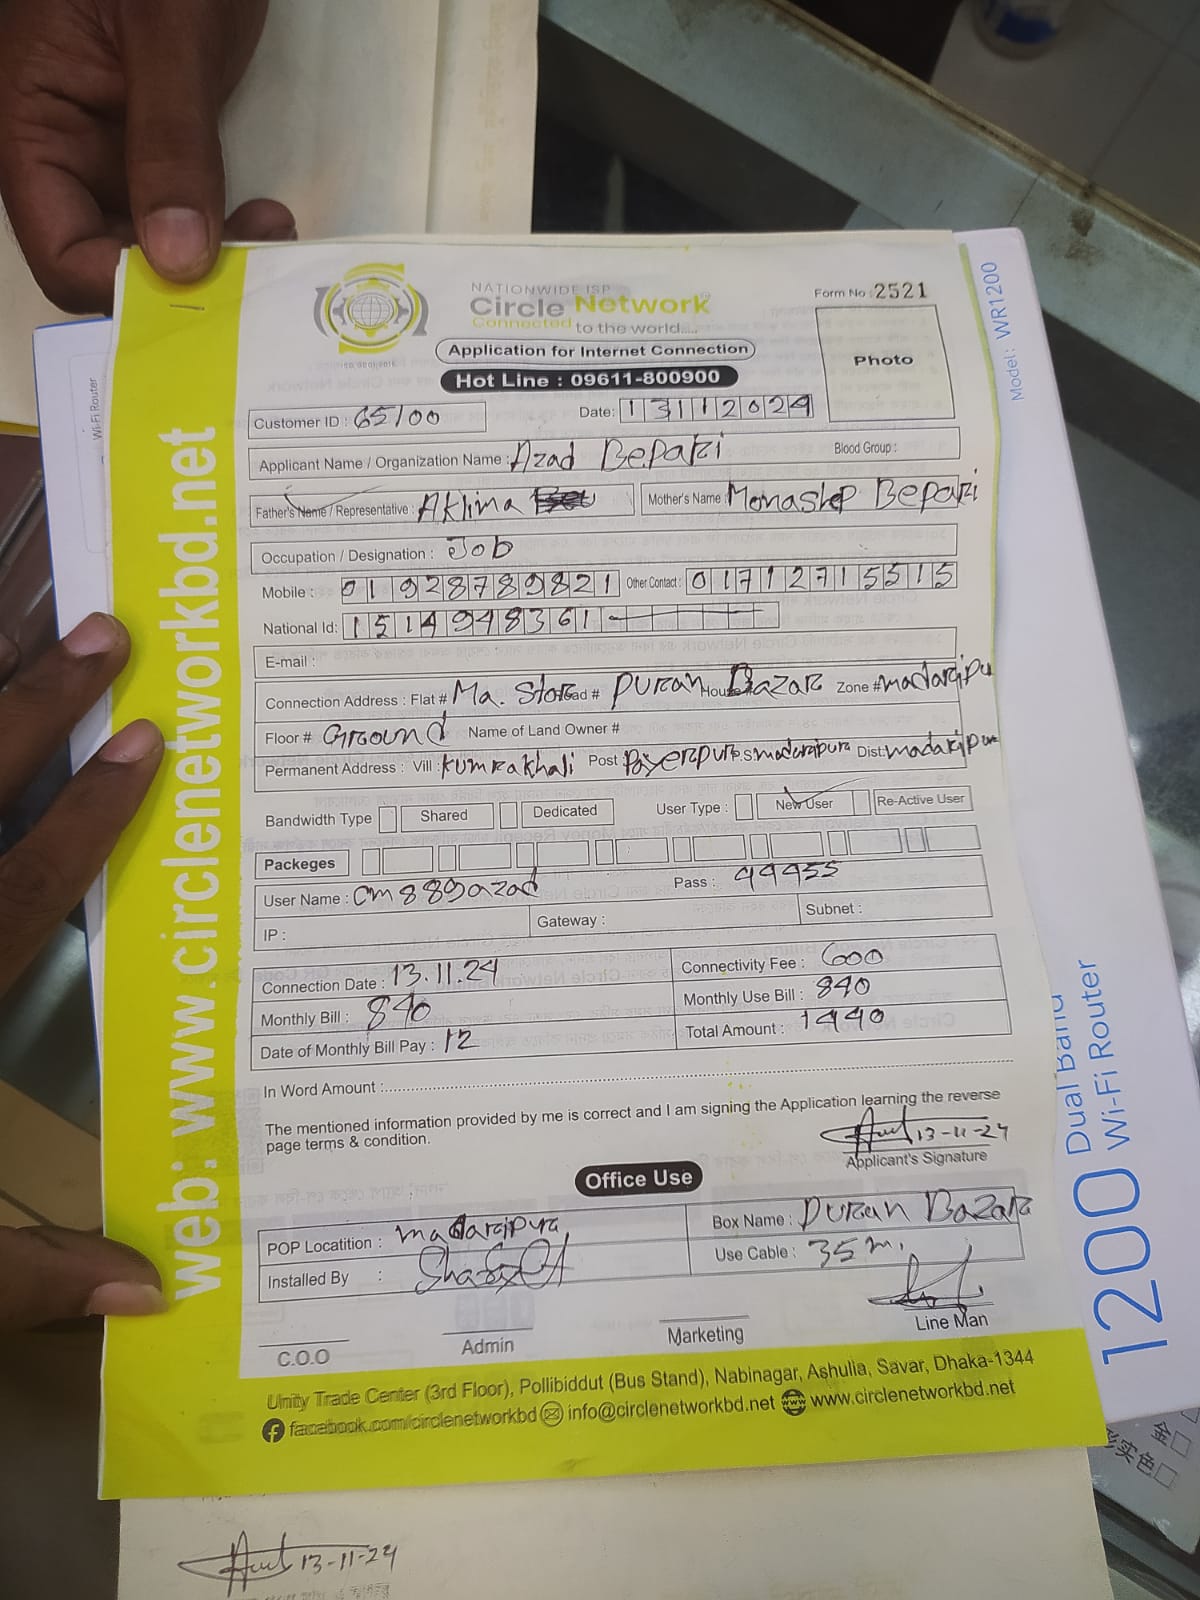 NATIONWIDE ISP
Circle Network
Connected to the world....
ISO 9001:2015
Form No : 2521
Photo
Application for Internet Connection
Hot Line : 09611-800900
Customer ID : 65100
Date: 13112024
Applicant Name / Organization Name : Azad Bepari
Blood Group :
Father's Name / Representative : Aklima
Mother's Name : Monashep Bepari
Occupation / Designation : Job
Mobile : 01928789821 Other Contact : 01712715515
National Id: 1514948361
E-mail :
Connection Address : Flat # Ma. Store Road # Puran House Bazar Zone # madaripur
Floor # Ground Name of Land Owner #
Permanent Address : Vill : Kumrakhali Post Payerpur P.S. madaripura Dist: madaripur
Bandwidth Type Shared Dedicated User Type : New User Re-Active User
Packeges
User Name : cm889azad Pass : 44455
IP : Gateway : Subnet :
Connection Date : 13.11.24 Connectivity Fee : 600
Monthly Bill : 840 Monthly Use Bill : 840
Date of Monthly Bill Pay : 12 Total Amount : 1440
In Word Amount :
The mentioned information provided by me is correct and I am signing the Application learning the reverse
page terms & condition.
13-11-24
Applicant's Signature
Office Use
POP Locatition : madaripura Box Name : Puran Bazar
Installed By : Use Cable : 35 m.
C.O.O Admin Marketing Line Man
Unity Trade Center (3rd Floor), Pollibiddut (Bus Stand), Nabinagar, Ashulia, Savar, Dhaka-1344
facebook.com/circlenetworkbd info@circlenetworkbd.net www.circlenetworkbd.net
web: www.circlenetworkbd.net
Wi-Fi Router
Model: WR1200
1200 Dual Band
Wi-Fi Router
金□
形实色□
13-11-24